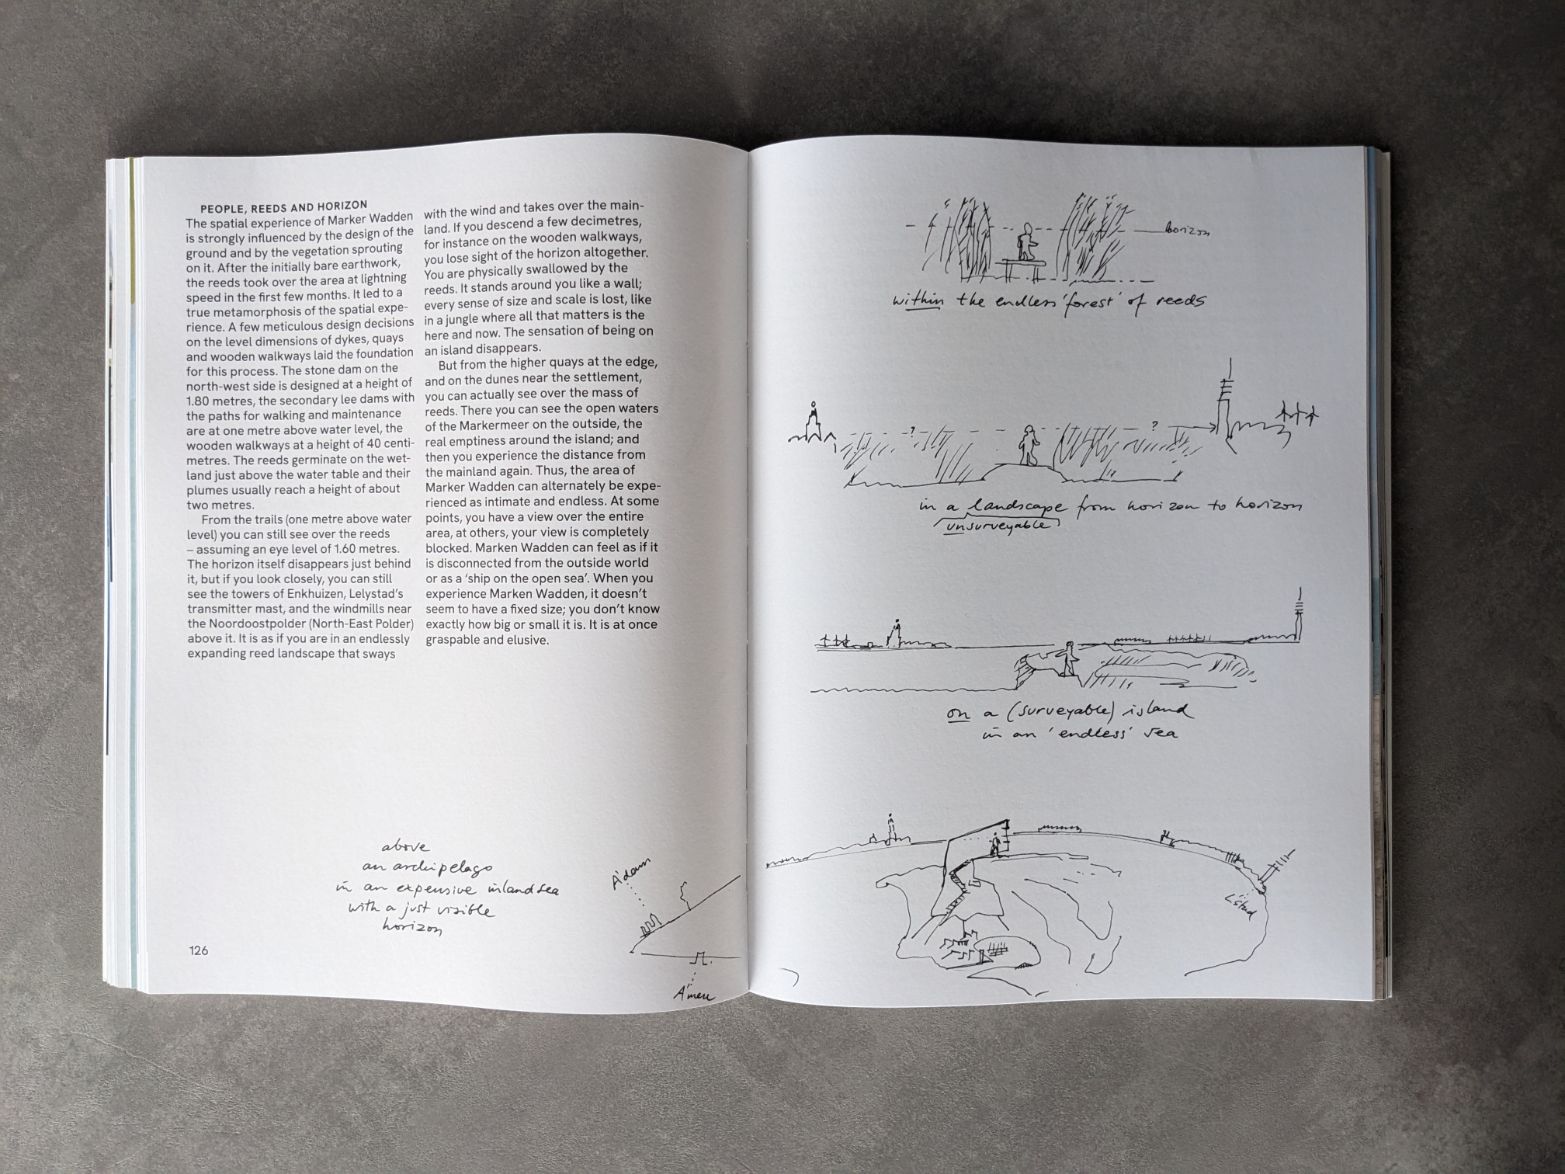 PEOPLE, REEDS AND HORIZON
The spatial experience of Marker Wadden
is strongly influenced by the design of the
ground and by the vegetation sprouting
on it. After the initially bare earthwork,
the reeds took over the area at lightning
speed in the first few months. It led to a
true metamorphosis of the spatial expe-
rience. A few meticulous design decisions
on the level dimensions of dykes, quays
and wooden walkways laid the foundation
for this process. The stone dam on the
north-west side is designed at a height of
1.80 metres, the secondary lee dams with
the paths for walking and maintenance
are at one metre above water level, the
wooden walkways at a height of 40 centi-
metres. The reeds germinate on the wet-
land just above the water table and their
plumes usually reach a height of about
two metres.
From the trails (one metre above water
level) you can still see over the reeds
– assuming an eye level of 1.60 metres.
The horizon itself disappears just behind
it, but if you look closely, you can still
see the towers of Enkhuizen, Lelystad's
transmitter mast, and the windmills near
the Noordoostpolder (North-East Polder)
above it. It is as if you are in an endlessly
expanding reed landscape that sways
with the wind and takes over the main-
land. If you descend a few decimetres,
for instance on the wooden walkways,
you lose sight of the horizon altogether.
You are physically swallowed by the
reeds. It stands around you like a wall;
every sense of size and scale is lost, like
in a jungle where all that matters is the
here and now. The sensation of being on
an island disappears.
But from the higher quays at the edge,
and on the dunes near the settlement,
you can actually see over the mass of
reeds. There you can see the open waters
of the Markermeer on the outside, the
real emptiness around the island; and
then you experience the distance from
the mainland again. Thus, the area of
Marker Wadden can alternately be expe-
rienced as intimate and endless. At some
points, you have a view over the entire
area, at others, your view is completely
blocked. Marken Wadden can feel as if it
is disconnected from the outside world
or as a 'ship on the open sea'. When you
experience Marken Wadden, it doesn't
seem to have a fixed size; you don't know
exactly how big or small it is. It is at once
graspable and elusive.
above
an archipelago
in an expensive inland sea
with a just visible
horizon
A'dam
A'mere
126
horizon
within the endless 'forest' of reeds
? ?
in a landscape from horizon to horizon
unsurveyable
on a (surveyable) island
in an 'endless' sea
L'stad